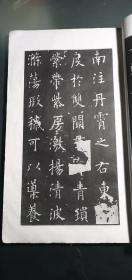 南注丹霄之右東
度於雙青瑣
縈帶紫房激揚清波
滌蕩瑕穢可以導養